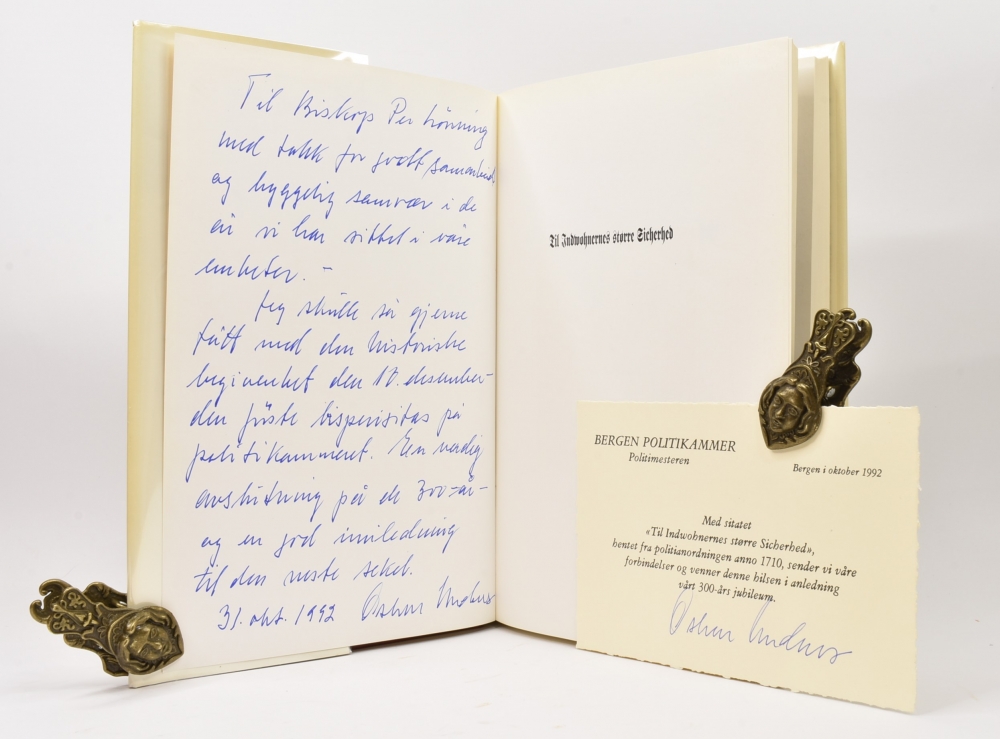 Til Biskop Per Lönning
med takk for godt samarbeid
og hyggelig samvær i de
år vi har sittet i våre
embeter. –
Jeg skulle så gjerne
fått med den historiske
begivenhet den 17. desember–
den første bispevisitas på
politikammeret. En verdig
avslutning på de 300-år–
og en god innledning
til den neste sekel.
31. okt. 1992 Oskar Hordnes
Til Indwohnernes større Sicherhed
BERGEN POLITIKAMMER
Politimesteren
Bergen i oktober 1992
Med sitatet
«Til Indwohnernes større Sicherhed»,
hentet fra politianordningen anno 1710, sender vi våre
forbindelser og venner denne hilsen i anledning
vårt 300-års jubileum.
Oskar Hordnes